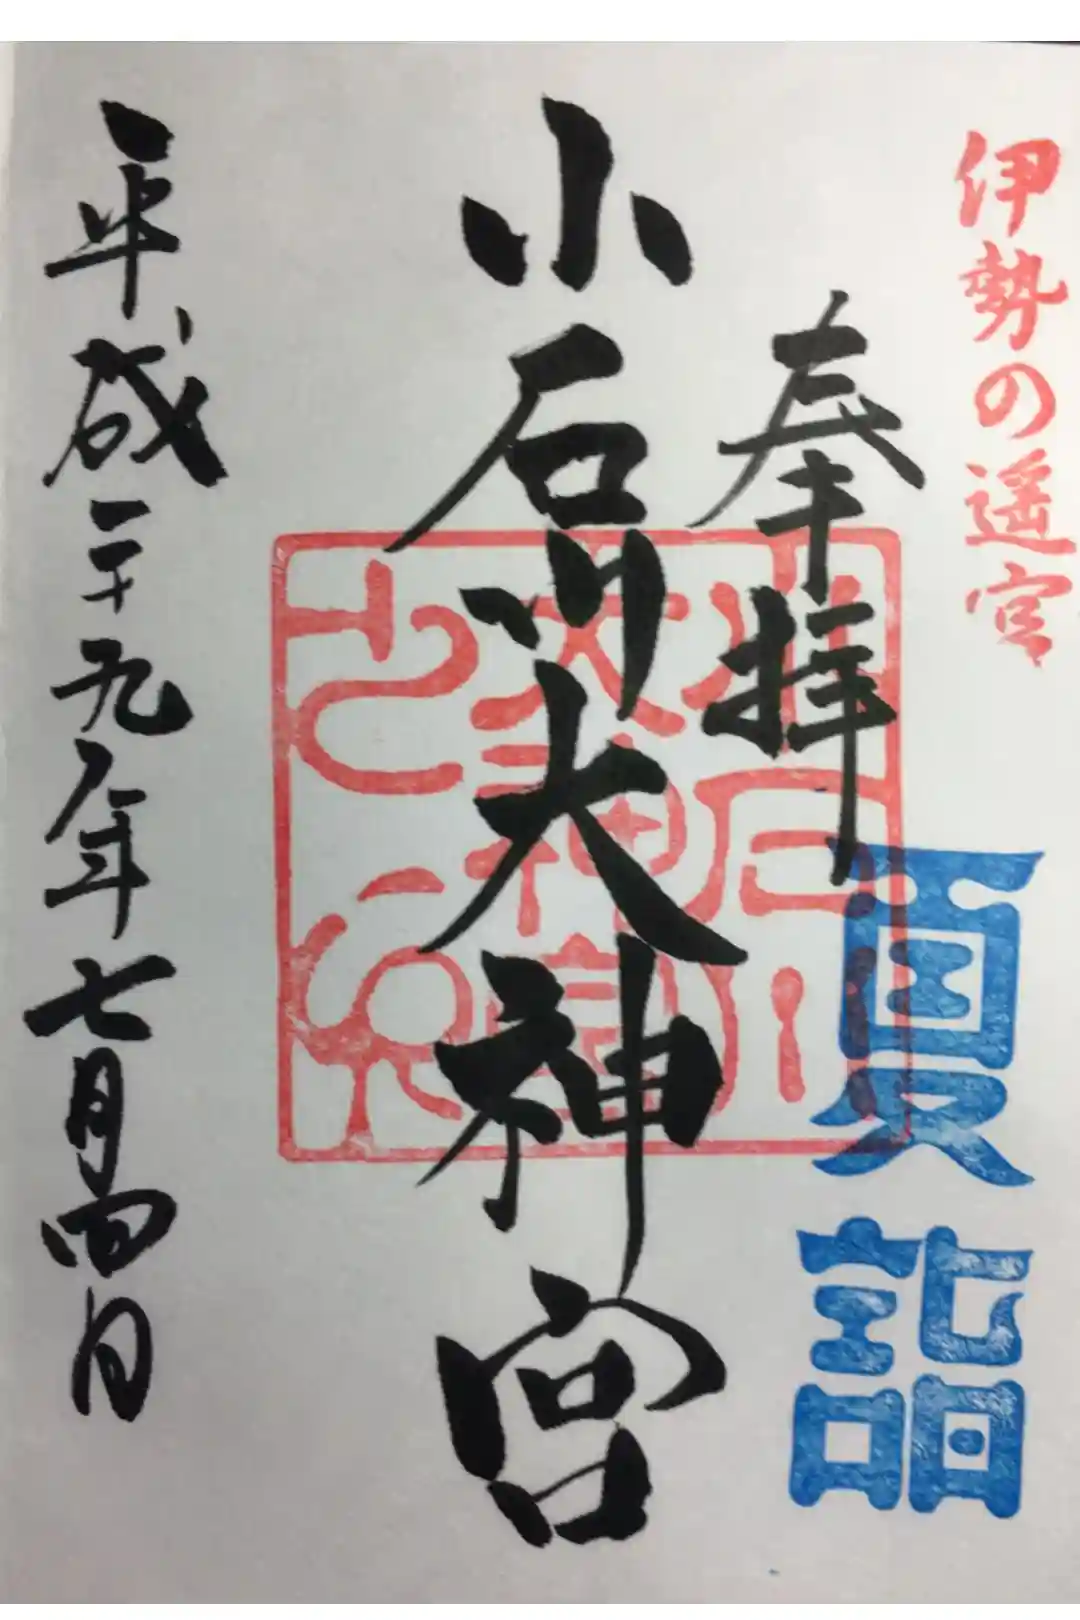 伊勢の遥宮
奉拝
夏詣
小石川大神宮
小石川大神宮之印
平成二十九年七月四日